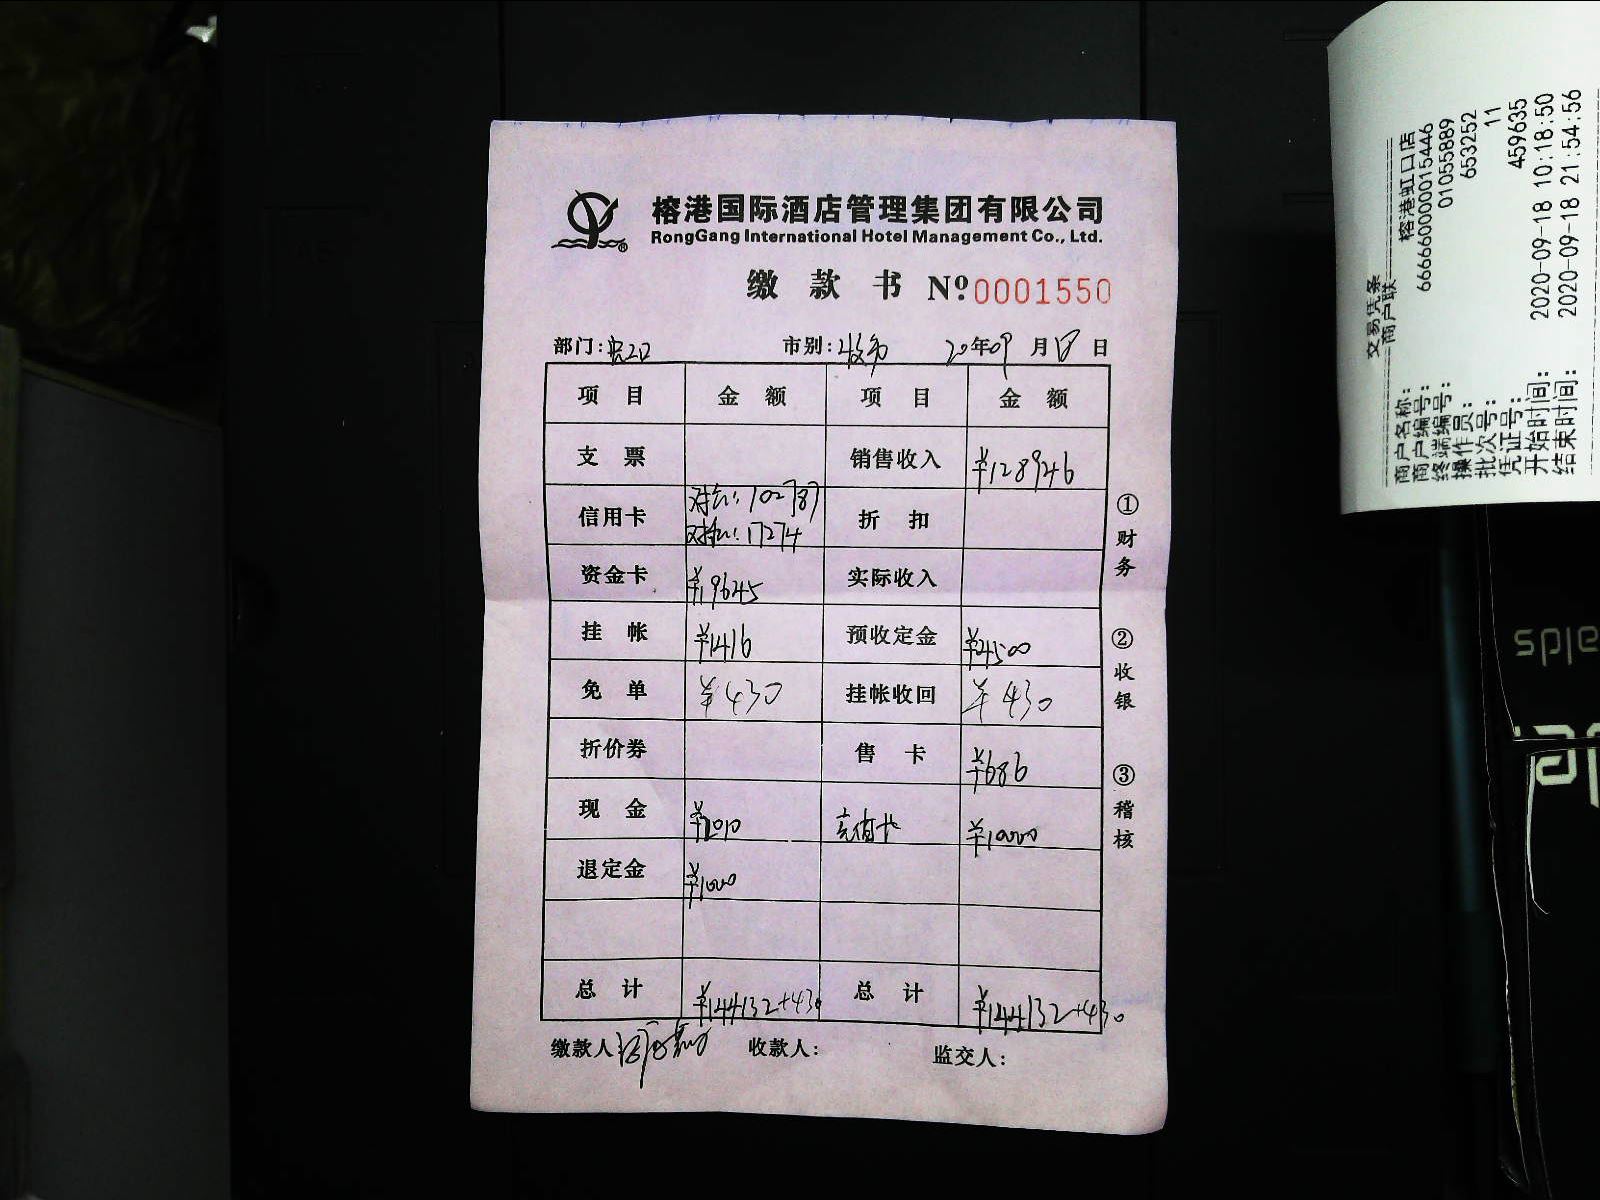 榕港国际酒店管理集团有限公司
RongGang International Hotel Management Co., Ltd.
缴 款 书 Nº 0001550
部门:虹口 市别: 20年09月18日
项 目 金 额 项 目 金 额
支 票 销售收入 ¥128946
信用卡 对公: 102787 折 扣
对私: 17274
资金卡 ¥19645 实际收入
挂 帐 ¥1416 预收定金 ¥4500
免 单 ¥430 挂帐收回 ¥430
折价券 售 卡 ¥686
现 金 ¥2010 充值卡 ¥10000
退定金 ¥1000
总 计 ¥144132+430 总 计 ¥144132+430
缴款人 收款人: 监交人:
①财务
②收银
③稽核
交易凭条
商户联
商户名称: 榕港虹口店
商户编号: 666660000015446
终端编号: 01055889
操作员: 653252
批次号: 11
凭证号: 459635
开始时间: 2020-09-18 10:18:50
结束时间: 2020-09-18 21:54:56